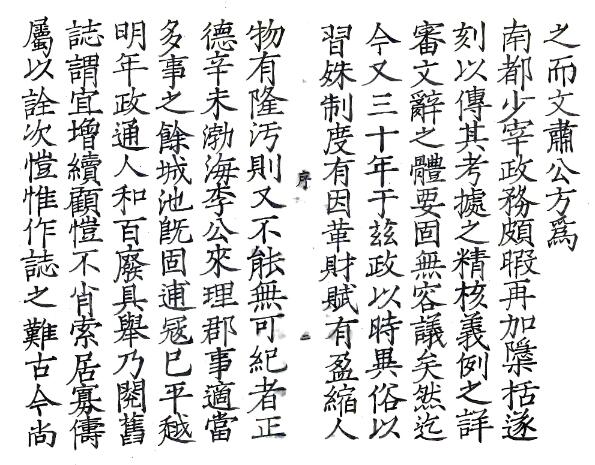 之而文肅公方爲
南都少宰政務頗暇再加檃括遂
刻以傳其考據之精核義例之詳
審文辭之體要固無容議矣然迄
今又三十年于兹政以時異俗以
習殊制度有因革財賦有盈縮人
序
二
物有隆汚則又不能無可紀者正
德辛未渤海李公來理郡事適當
多事之餘城池旣固逋寇巳平越
明年政通人和百廢具舉乃閱舊
誌謂宜增續顧愷不肖索居寡儔
屬以詮次愷惟作誌之難古今尚